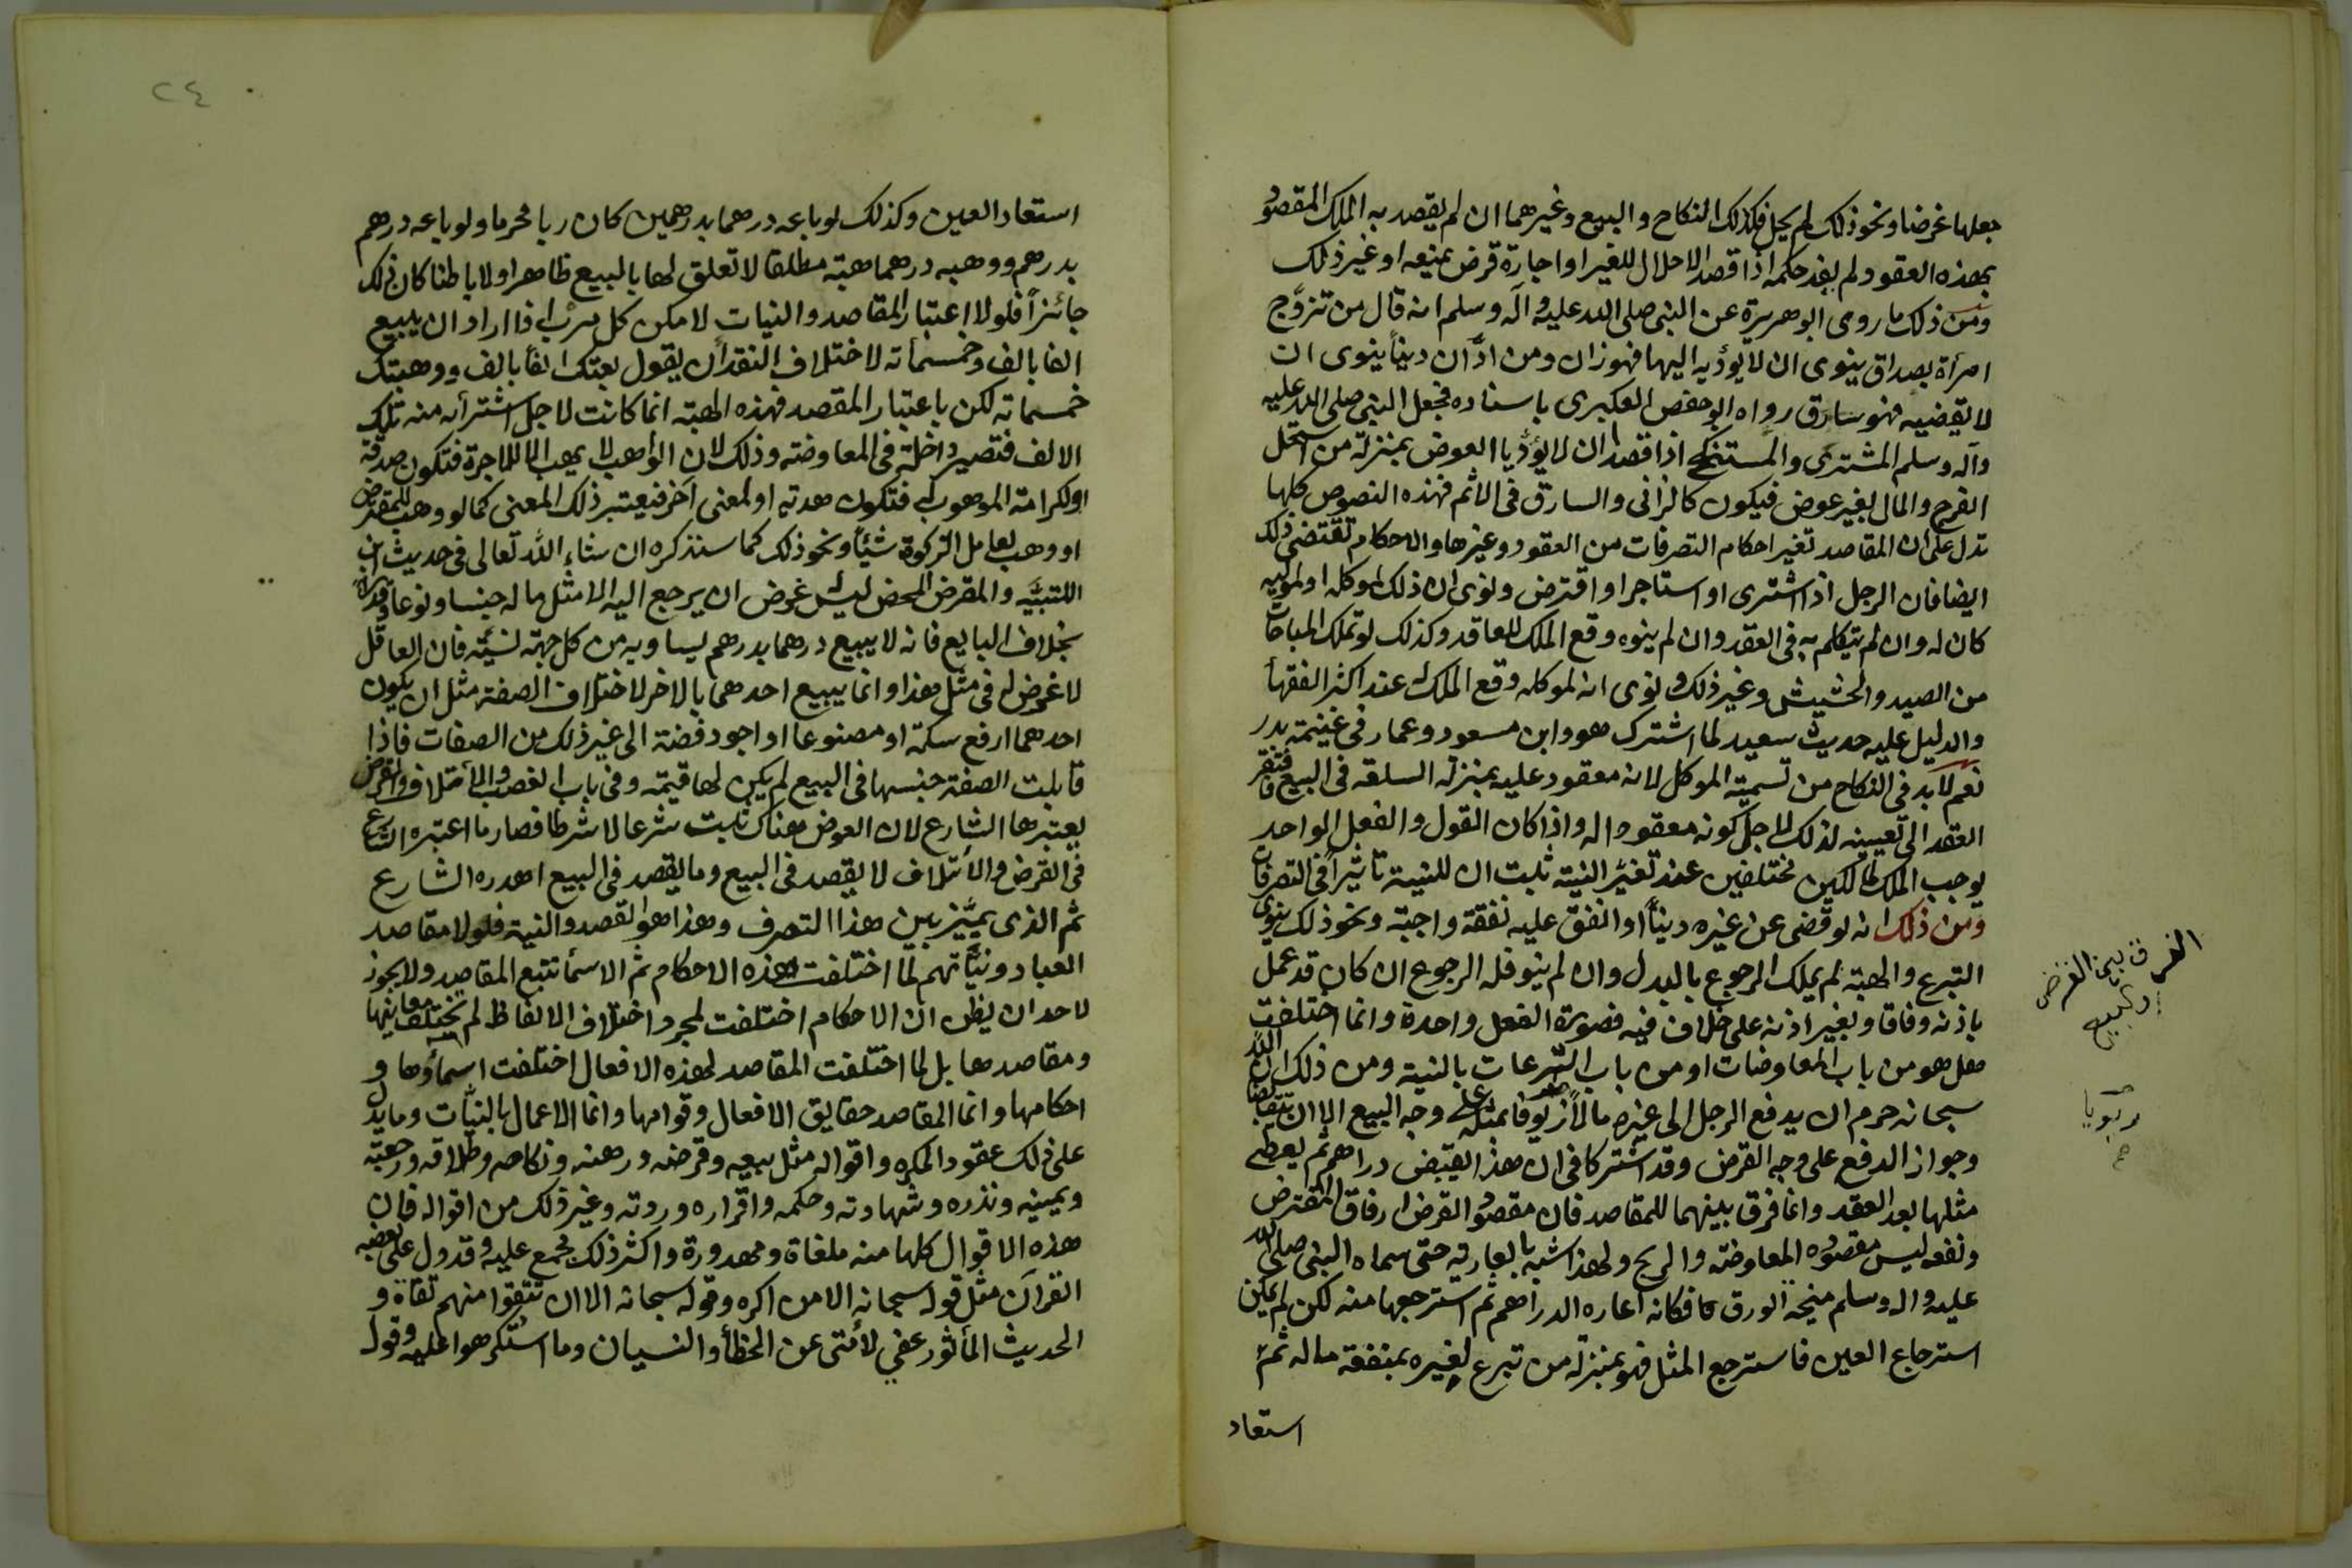 جعلها غرضا ونحو ذلك لم يحل فكذلك النكاح والبيع وغيرهما ان لم يقصد به الملك المقصود
بهذه العقود ولم يفد حكمه اذا قصد الاحلال للغير او اجارة قرض بمنيعه او غير ذلك
ومن ذلك ما روى ابو هريرة عن النبى صلى الله عليه وآله وسلم انه قال من تزوّج
امرأة بصداق ينوى ان لا يؤديه اليها فهو زان ومن ادّان ديناً ينوى ان
لا يقضيه فهو سارق رواه ابو حفص العكبرى باسناده فجعل النبى صلى الله عليه
وآله وسلم المشترى والمستنكح اذا قصدا ان لا يؤدّيا العوض بمنزلة من استحل
الفرج والمال بغير عوض فيكون كالزانى والسارق فى الاثم فهذه النصوص كلها
تدل على ان المقاصد تغير احكام التصرفات من العقود وغيرها والاحكام تقتضى ذلك
ايضا فان الرجل اذا اشترى او استاجر او اقترض ونوى ان ذلك لموكله او لموليه
كان له وان لم يتكلم به فى العقد وان لم ينوه وقع الملك للعاقد وكذلك لو تملك المباحات
من الصيد والحشيش وغير ذلك ونوى انه لموكله وقع الملك له عند اكثر الفقهأ
والدليل عليه حديث سعيد لما اشترك هو وابن مسعود وعمار فى غنيمة بدر
نعم لا بد فى النكاح من تسمية الموكل لانه معقود عليه بمنزلة السلعة فى البيع فافتقر
العقد الى تعيينه لذلك لا لاجل كونه معقودا له واذا كان القول والفعل الواحد
يوجب الملك لمالكين مختلفين عند تغيّر النية ثبت ان للنية تاثيراً فى التصرفات
ومن ذلك انه لو قضى عن غيره ديناً او انفق عليه نفقة واجبة ونحو ذلك ينوى
التبرع والهبة لم يملك الرجوع بالبدل وان لم ينو فله الرجوع ان كان قد عمل
باذنه وفاقا وبغير اذنه على خلاف فيه فصورة الفعل واحدة وانما اختلفت
هل هو من باب المعاوضات او من باب التبرعات بالنية ومن ذلك ان الله
سبحانه حرم ان يدفع الرجل الى غيره مالاً ربويا بمثله على وجه البيع الا ان يتقابضا
وجواز الدفع على وجه القرض وقد اشتركا فى ان هذا يقبض دراهم ثم يعطى
مثلها بعد العقد وانما فرق بينهما للمقاصد فان مقصود القرض ارفاق المقترض
ونفعه ليس مقصوده المعاوضة والربح ولهذا شبه بالعارية حتى سماه النبى صلى الله
عليه واله وسلم منيحة الورق فكانه اعاره الدراهم ثم استرجعها منه لكن لم يمكن
استرجاع العين فاسترجع المثل فهو بمنزلة من تبرع لغيره بمنفعة ماله ثمّ
استعاد
الفرق بين القرض
والبيع
ربويا
استعاد العين وكذلك لو باعه درهما بدرهمين كان ربا محرما ولو باعه درهم
بدرهم ووهبه درهما هبة مطلقا لا تعلق لها بالبيع ظاهرا ولا باطنا كان ذلك
جائزاً فلولا اعتبار المقاصد والنيات لامكن كل مرب اذا اراد ان يبيع
الفا بالف وخمسمأته لاختلاف النقد ان يقول بعتك الفاً بالف ووهبتك
خمسماته لكن باعتبار المقصد فهذه الهبة انما كانت لاجل اشترائه منه تلك
الالف فتصير داخلة فى المعاوضة وذلك لان الواهب لا يهب الا للاجرة فتكون صدقة
او لكرامة الموهوب له فتكون هدية او لمعنى آخر فيعتبر ذلك المعنى كما لو وهب للمقرض
او وهب لعامل الزكوة شيئاً ونحو ذلك كما سنذكره ان شاء الله تعالى فى حديث ابن
اللتبيَّه والمقرض المحض ليس له غرض ان يرجع اليه الا مثل ماله جنسا ونوعا وقدرا
بخلاف البايع فانه لا يبيع درهما بدرهم يساويه من كل جهة نسيئة فان العاقل
لا غرض له فى مثل هذا وانما يبيع احدهما بالاخر لاختلاف الصفة مثل ان يكون
احدهما ارفع سكة او مصنوعا او اجود فضة الى غير ذلك من الصفات فاذا
قابلت الصفة جنسها فى البيع لم يكن لها قيمة وفى باب الغصب والاتلاف والقرض
يعتبرها الشارع لان العوض هناك ثابت شرعا لا شرطا فصار ما اعتبره الشارع
فى القرض والاتلاف لا يقصد فى البيع وما يقصد فى البيع اهدره الشارع
ثم الذى يميّز بين هذا التصرف وهذا هو القصد والنية فلولا مقاصد
العباد ونيّاتهم لما اختلفت هذه الاحكام ثم الاسمأ تتبع المقاصد ولا يجوز
لاحد ان يظن ان الاحكام اختلفت لمجرد اختلاف الالفاظ لم تختلف معانيها
ومقاصدها بل لما اختلفت المقاصد لهذه الافعال اختلفت اسماؤها و
احكامها وانما المقاصد حقايق الافعال وقوامها وانما الاعمال بالنيّات وما يدل
على ذلك عقود المكره واقواله مثل بيعه وقرضه ورهنه ونكاحه وطلاقه ورجعته
ويمينه ونذره وشهادته وحكمه واقراره وردته وغير ذلك من اقواله فان
هذه الاقوال كلها منه ملغاة ومهدورة واكثر ذلك مجمع عليه وقد دل على بعضه
القرآن مثل قوله سبحانه الا من اكره وقوله سبحانه الا ان تتقوا منهم تقاة و
الحديث المأثور عفى لأمتى عن الخطأ والنسيان وما استكرهوا عليه وقوله
٢٤